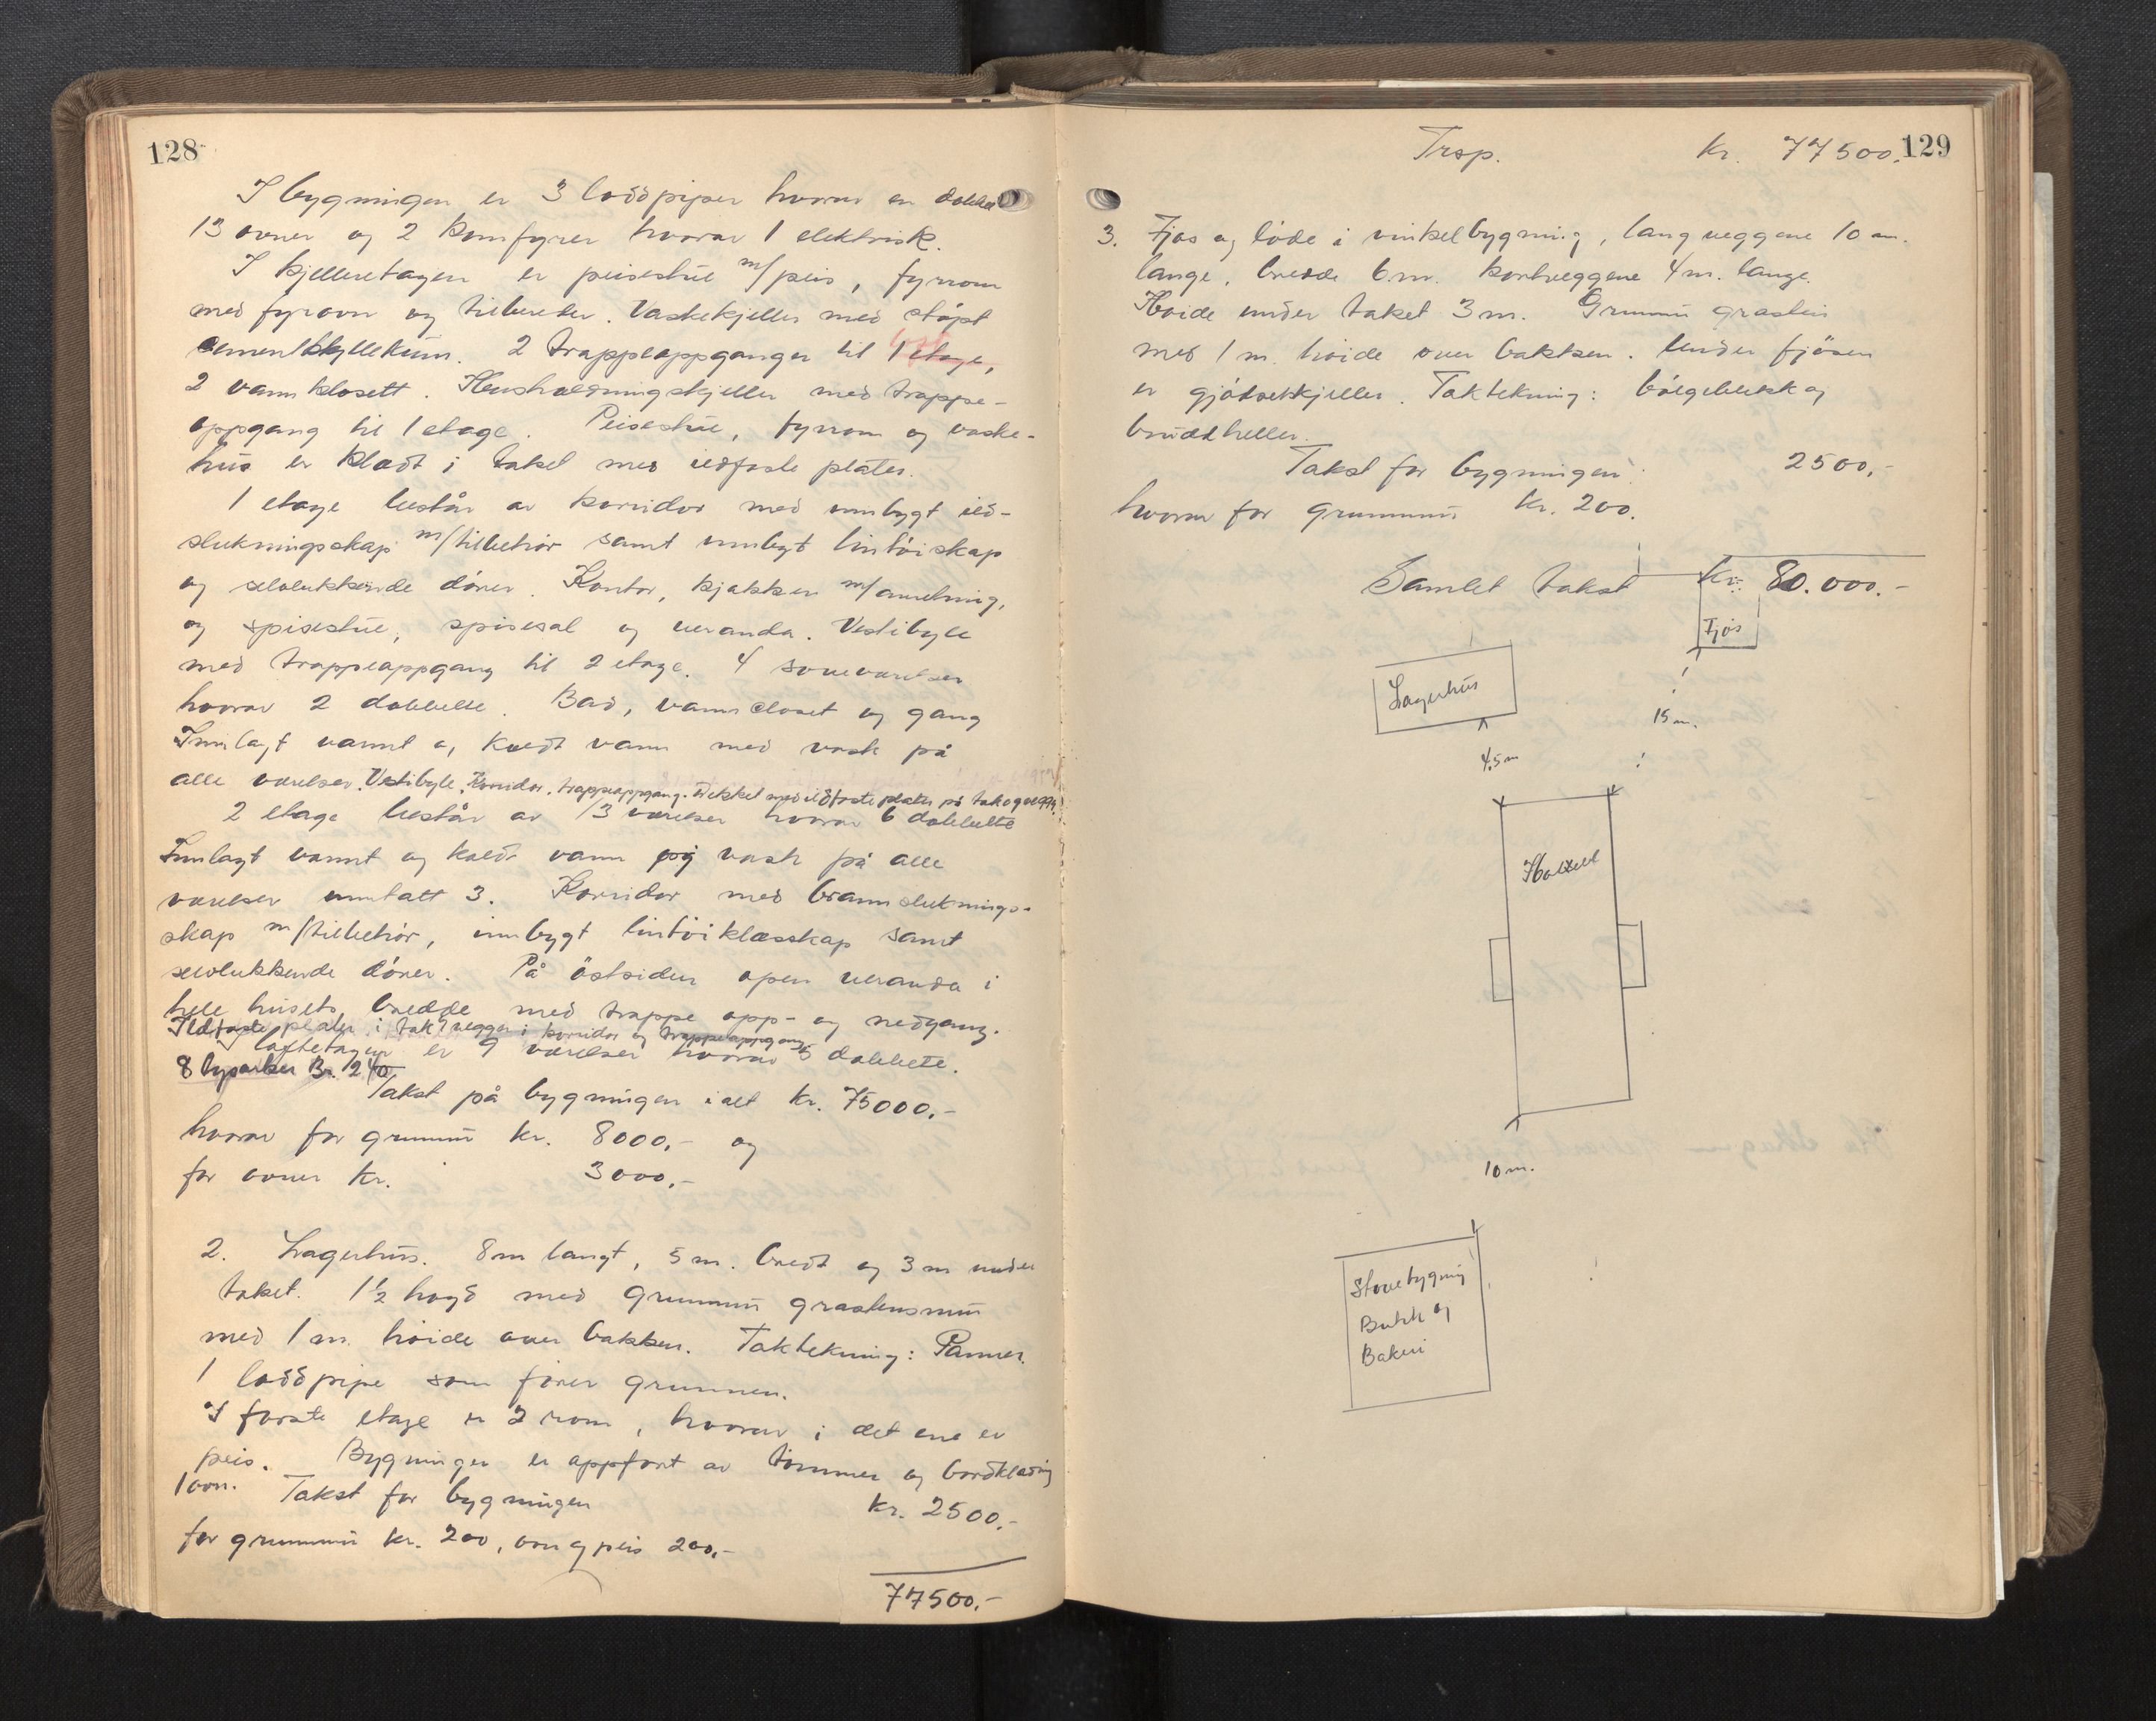 128
I bygningen er 3 loddpiper hvorav en dobbel
13 ovner og 2 komfyrer hvorav 1 elektrisk.
I kjelleretagen er peisestue m/peis, fyrrom
med fyrovn og tilbereder. Vaskekjeller med støpt
cementskyllekum. 2 trappeoppganger til 1 etage,
2 vannklosett. Husholdningskjeller med trappe-
oppgang til 1 etage. Peisestue, fyrrom og vaske-
hus er klædt i taket med ildfaste plater.
1 etage består av korridor med innbygt ild-
slukningsskap m/tilbehør samt innbygt lintøiskap
og selvlukkende dører. Kontor, kjøkken m/anretning,
og spisestue, spisesal og veranda. Vestibyle
med trappeoppgang til 2 etage. 4 soveværelser
hvorav 2 dobbelte. Bad, vanncloset og gang
Innlagt varmt og koldt vann med vask på
alle værelser. Vestibyle, Korridor, trappeoppgang. Dekket med ildfaste plater på tak og vegg.
2 etage består av 13 værelser hvorav 6 dobbelte
Innlagt varmt og koldt vann og vask på alle
værelser unntatt 3. Korridor med brannsluknings-
skap m/tilbehør, innbygt lintøiklæsskap samt
selvlukkende dører. På østsiden open veranda i
hele husets bredde med trappe opp- og nedgang.
Ildfaste plater i tak & vegger i korridor og trappeoppgang
I loftetagen er 9 værelser hvorav 5 dobbelte.
8 Br. 240
Takst på bygningen ialt kr. 75000.-
hvorav for grunnmur kr. 8000,- og
for ovner kr. 3000,-
2. Lagerhus. 8 m langt, 5 m. bredt og 3 m under
taket. 1½ høgd med grunnmur gråstensmur
med 1 m. høide over bakken. Taktekning: Panner.
1 loddpipe som fører grunnen.
I første etage er 2 rom, hvorav i det ene er
peis. Bygningen er oppført av tømmer og bordklædning
1 ovn. Takst for bygningen kr. 2500.-
for grunnmur kr. 200, ovn og peis 200,-
77500.-
129
Trsp. kr. 77500.
3. Fjøs og løde i vinkelbygning, langveggene 10 m.
lange, bredde 6 m. kortveggene 4 m. lange.
Høide under taket 3 m. Grunnmur gråsten
med 1 m. høide over bakken. Under fjøsen
er gjødselkjeller. Taktekning: bølgeblekk og
bruddheller.
Takst for bygningen: 2500,-
hvorav for grunnmur kr. 200.
Samlet takst kr. 80.000.-
Fjøs
Lagerhus
15 m.
4,5 m
Hotell
10 m.
Stovebygning
Butikk og
Bakeri